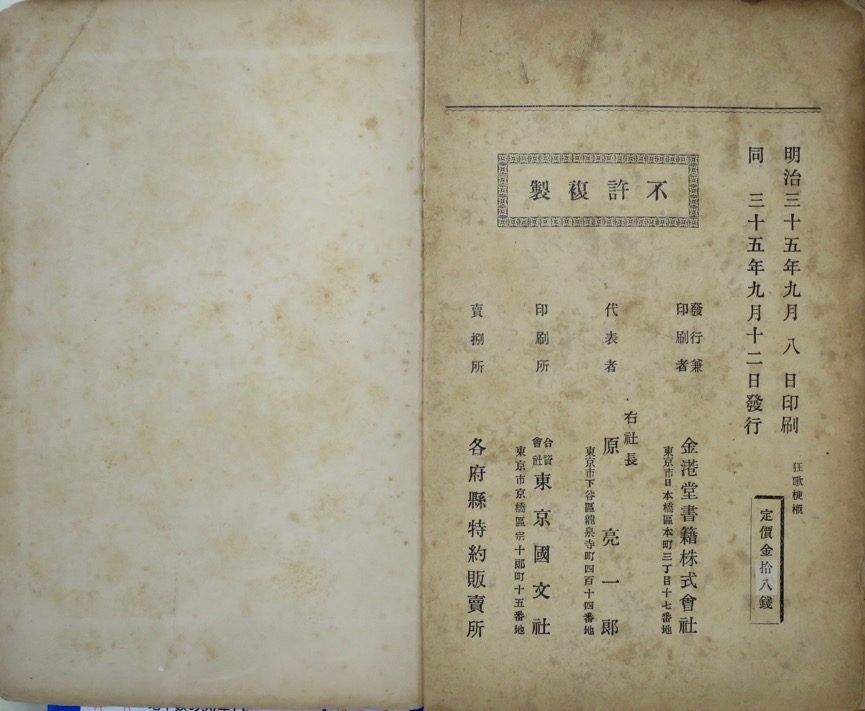 明治三十五年九月八日印刷
同三十五年九月十二日發行
狂歌梗概
定價金拾八錢
不許複製
發行兼
印刷者
金港堂書籍株式會社
東京市日本橋區本町三丁目十七番地
代表者
右社長
原亮一郞
東京市下谷區龍泉寺町四百十四番地
印刷所
合資
會社
東京國文社
東京市京橋區宗十郞町十五番地
賣捌所
各府縣特約販賣所